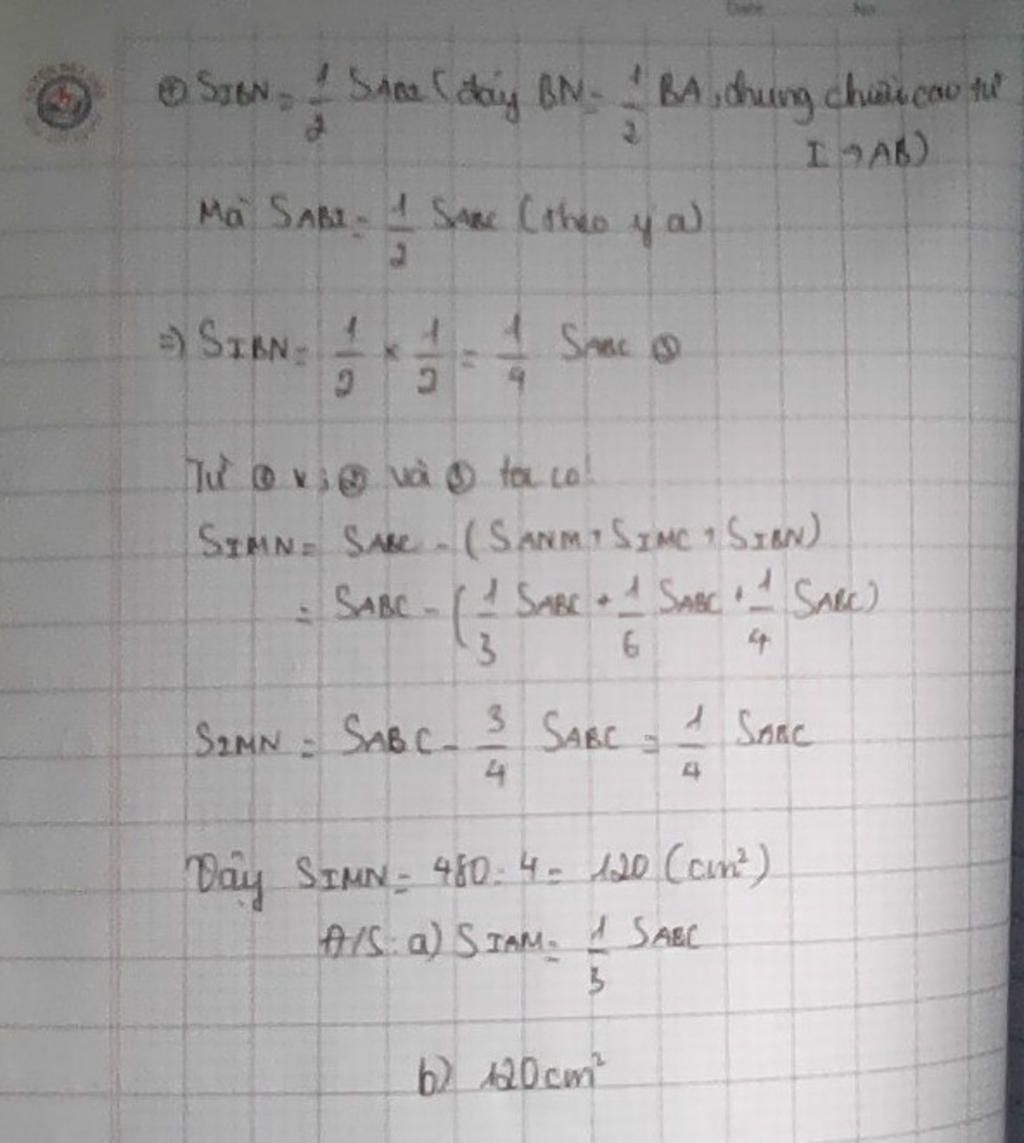 ⊕ SIBN = 1/2 SABI (đáy BN = 1/2 BA, chung chiều cao từ
I → AB)
Mà SABI = 1/2 SABC (theo ý a)
=) SIBN = 1/2 x 1/2 = 1/4 SABC ③
Từ ① và ② và ③ ta có:
SIMN = SABC - (SANM + SIMC + SIBN)
= SABC - (1/3 SABC + 1/6 SABC + 1/4 SABC)
SIMN = SABC - 3/4 SABC = 1/4 SABC
Vậy SIMN = 480 : 4 = 120 (cm²)
Đ/S: a) SIAM = 1/3 SABC
b) 120cm²